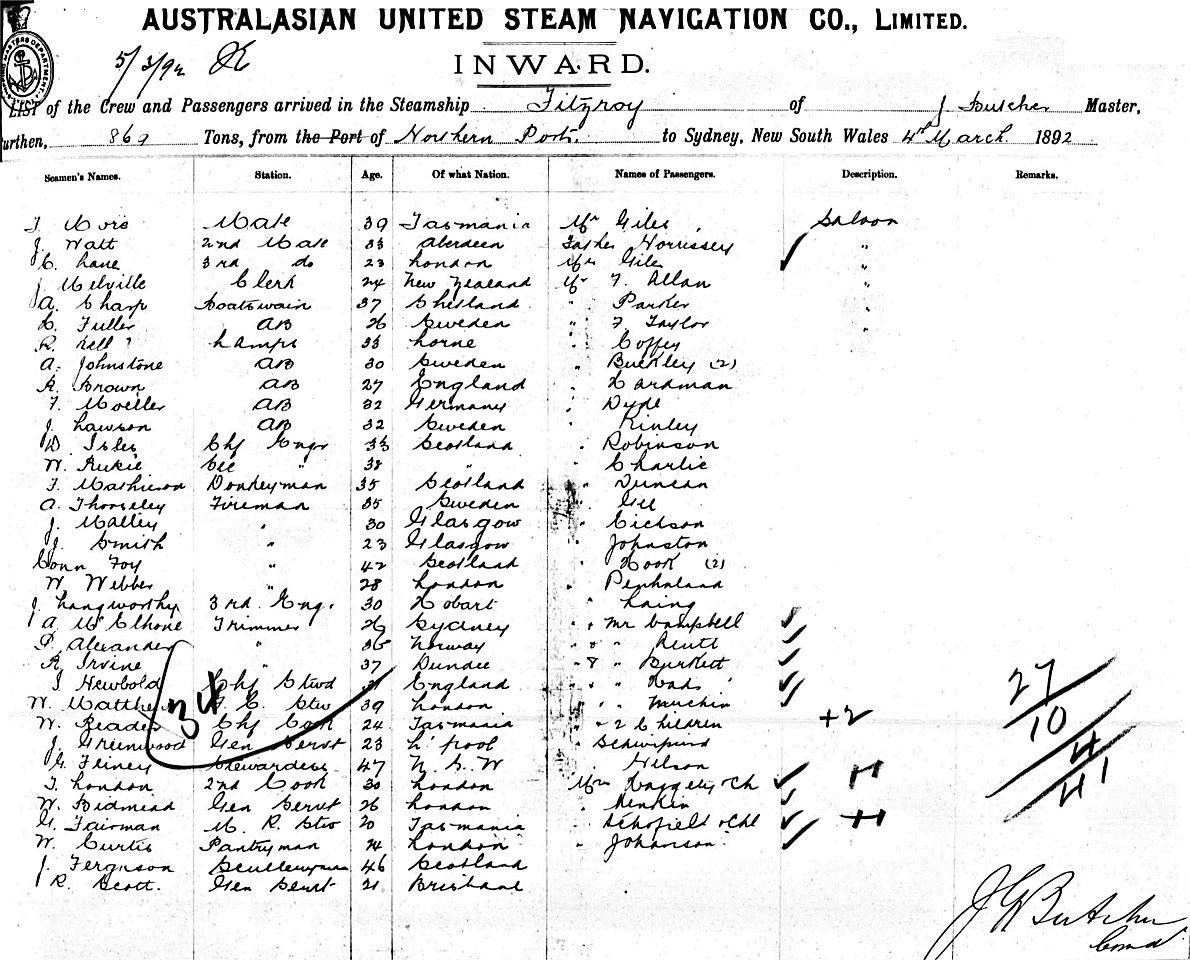 AUSTRALASIAN UNITED STEAM NAVIGATION CO., LIMITED.
5/3/92
INWARD.
LIST of the Crew and Passengers arrived in the Steamship Fitzroy of J Butcher Master,
urthen, 869 Tons, from the Port of Northern Ports. to Sydney, New South Wales 4th March 1892
Seamen's Names. Station. Age. Of what Nation. Names of Passengers. Description. Remarks.
Mate 39 Tasmania Mr Giles Saloon
J. Watt 2nd Mate 33 Aberdeen Father Morrissey "
C. Lane 3rd do 23 London Mrs Giles "
J Melville Clerk 24 New Zealand Mr F. Allan "
A. Sharp Boatswain 37 Shetland " Parker "
C. Fuller AB 26 Sweden " F Taylor "
R. Kell ? Lamps 33 Lorne " Coffey
A. Johnstone AB 30 Sweden " Buckley (2)
R. Brown AB 27 England " Hardman
F. Moeller AB 32 Germany " Dyde
J. Lawson AB 32 Sweden " Kinley
D. Isles Chf Engr 33 Scotland " Robinson
W. 38 " " Charlie
F. Mathieson Donkeyman 35 Scotland " Duncan
A. Thorseley Fireman 35 Sweden " Gee
J. Malley " 30 Glasgow " Dickson
J. Smith " 23 Glasgow " Johnston
Conn Foy " 42 Scotland " Hook (2)
W. Webber " 28 London " Penhaland
J. Langworthy 3rd Eng. 30 Hobart " Laing
A. McElhone Trimmer 26 Sydney " Mr Campbell
P. Alexander " 36 Norway " "
R. Irvine " 37 Dundee " " Burkett
J Newbold Chf Stwd England " " Eads
W. Matthews F. C. Stw 39 London " "
W. Reader Chf Cook 24 Tasmania " 2 Children +2
J. Greenwood Gen Servt 23 L'pool
G. Feiney Stewardess 47 N. S. W " Wilson
T. London 2nd Cook 30 London Mrs Haggerty & Ch
W. Bidmead Gen Servt 26 London
G. Fairman M. R. Stw 20 Tasmania " Schofield & Chl
W. Curtis Pantryman 24 London " Johanson
J. Ferguson Sculleryman 46 Scotland
R. Scott. Gen Servt 21 Brisbane
34
27
10
4
41
J G Butcher
Comd